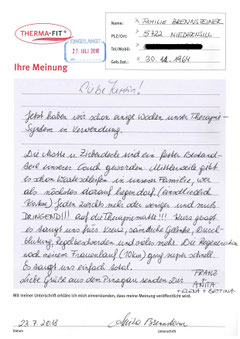 THERMA-FIT®
EINGELANGT
27. JULI 2018
Name: FAMILIE BRENNSTEINER
PLZ/Ort: 5722 NIEDERNSILL
Tel/Mobil:
Geb. Dat.: 30.12.1964
Ihre Meinung
Liebe
Jetzt haben wir schon einige Wochen unser Therapie-
System in Verwendung.
Die Matte u. Zirbendecke sind ein fester Bestand-
teil unserer Couch geworden. Mittlerweile gibt
es schon Wartezeiten in unserer Familie, wer
als nächster darauf liegen darf. (einschließlich
Kater) Jeder zwickt mehr oder weniger und muß
DRINGEND!!! auf die Therapiematte!!! Kurz gesagt
es taugt uns fürs Kreuz, sämtliche Gelenke, Durch-
blutung, Regelbeschwerden und vieles mehr. Die Regeneration
nach meinem Frauenlauf (10km) ging super schnell.
Es taugt uns einfach total.
Liebe Grüße aus dem Pinzgau senden Dir FRANZ
ANITA
+ ELENA + BETTINA
Mit meiner Unterschrift erkläre ich mich einverstanden, dass meine Meinung veröffentlicht wird.
23.7.2018 Anita Brennsteiner
Datum Unterschrift